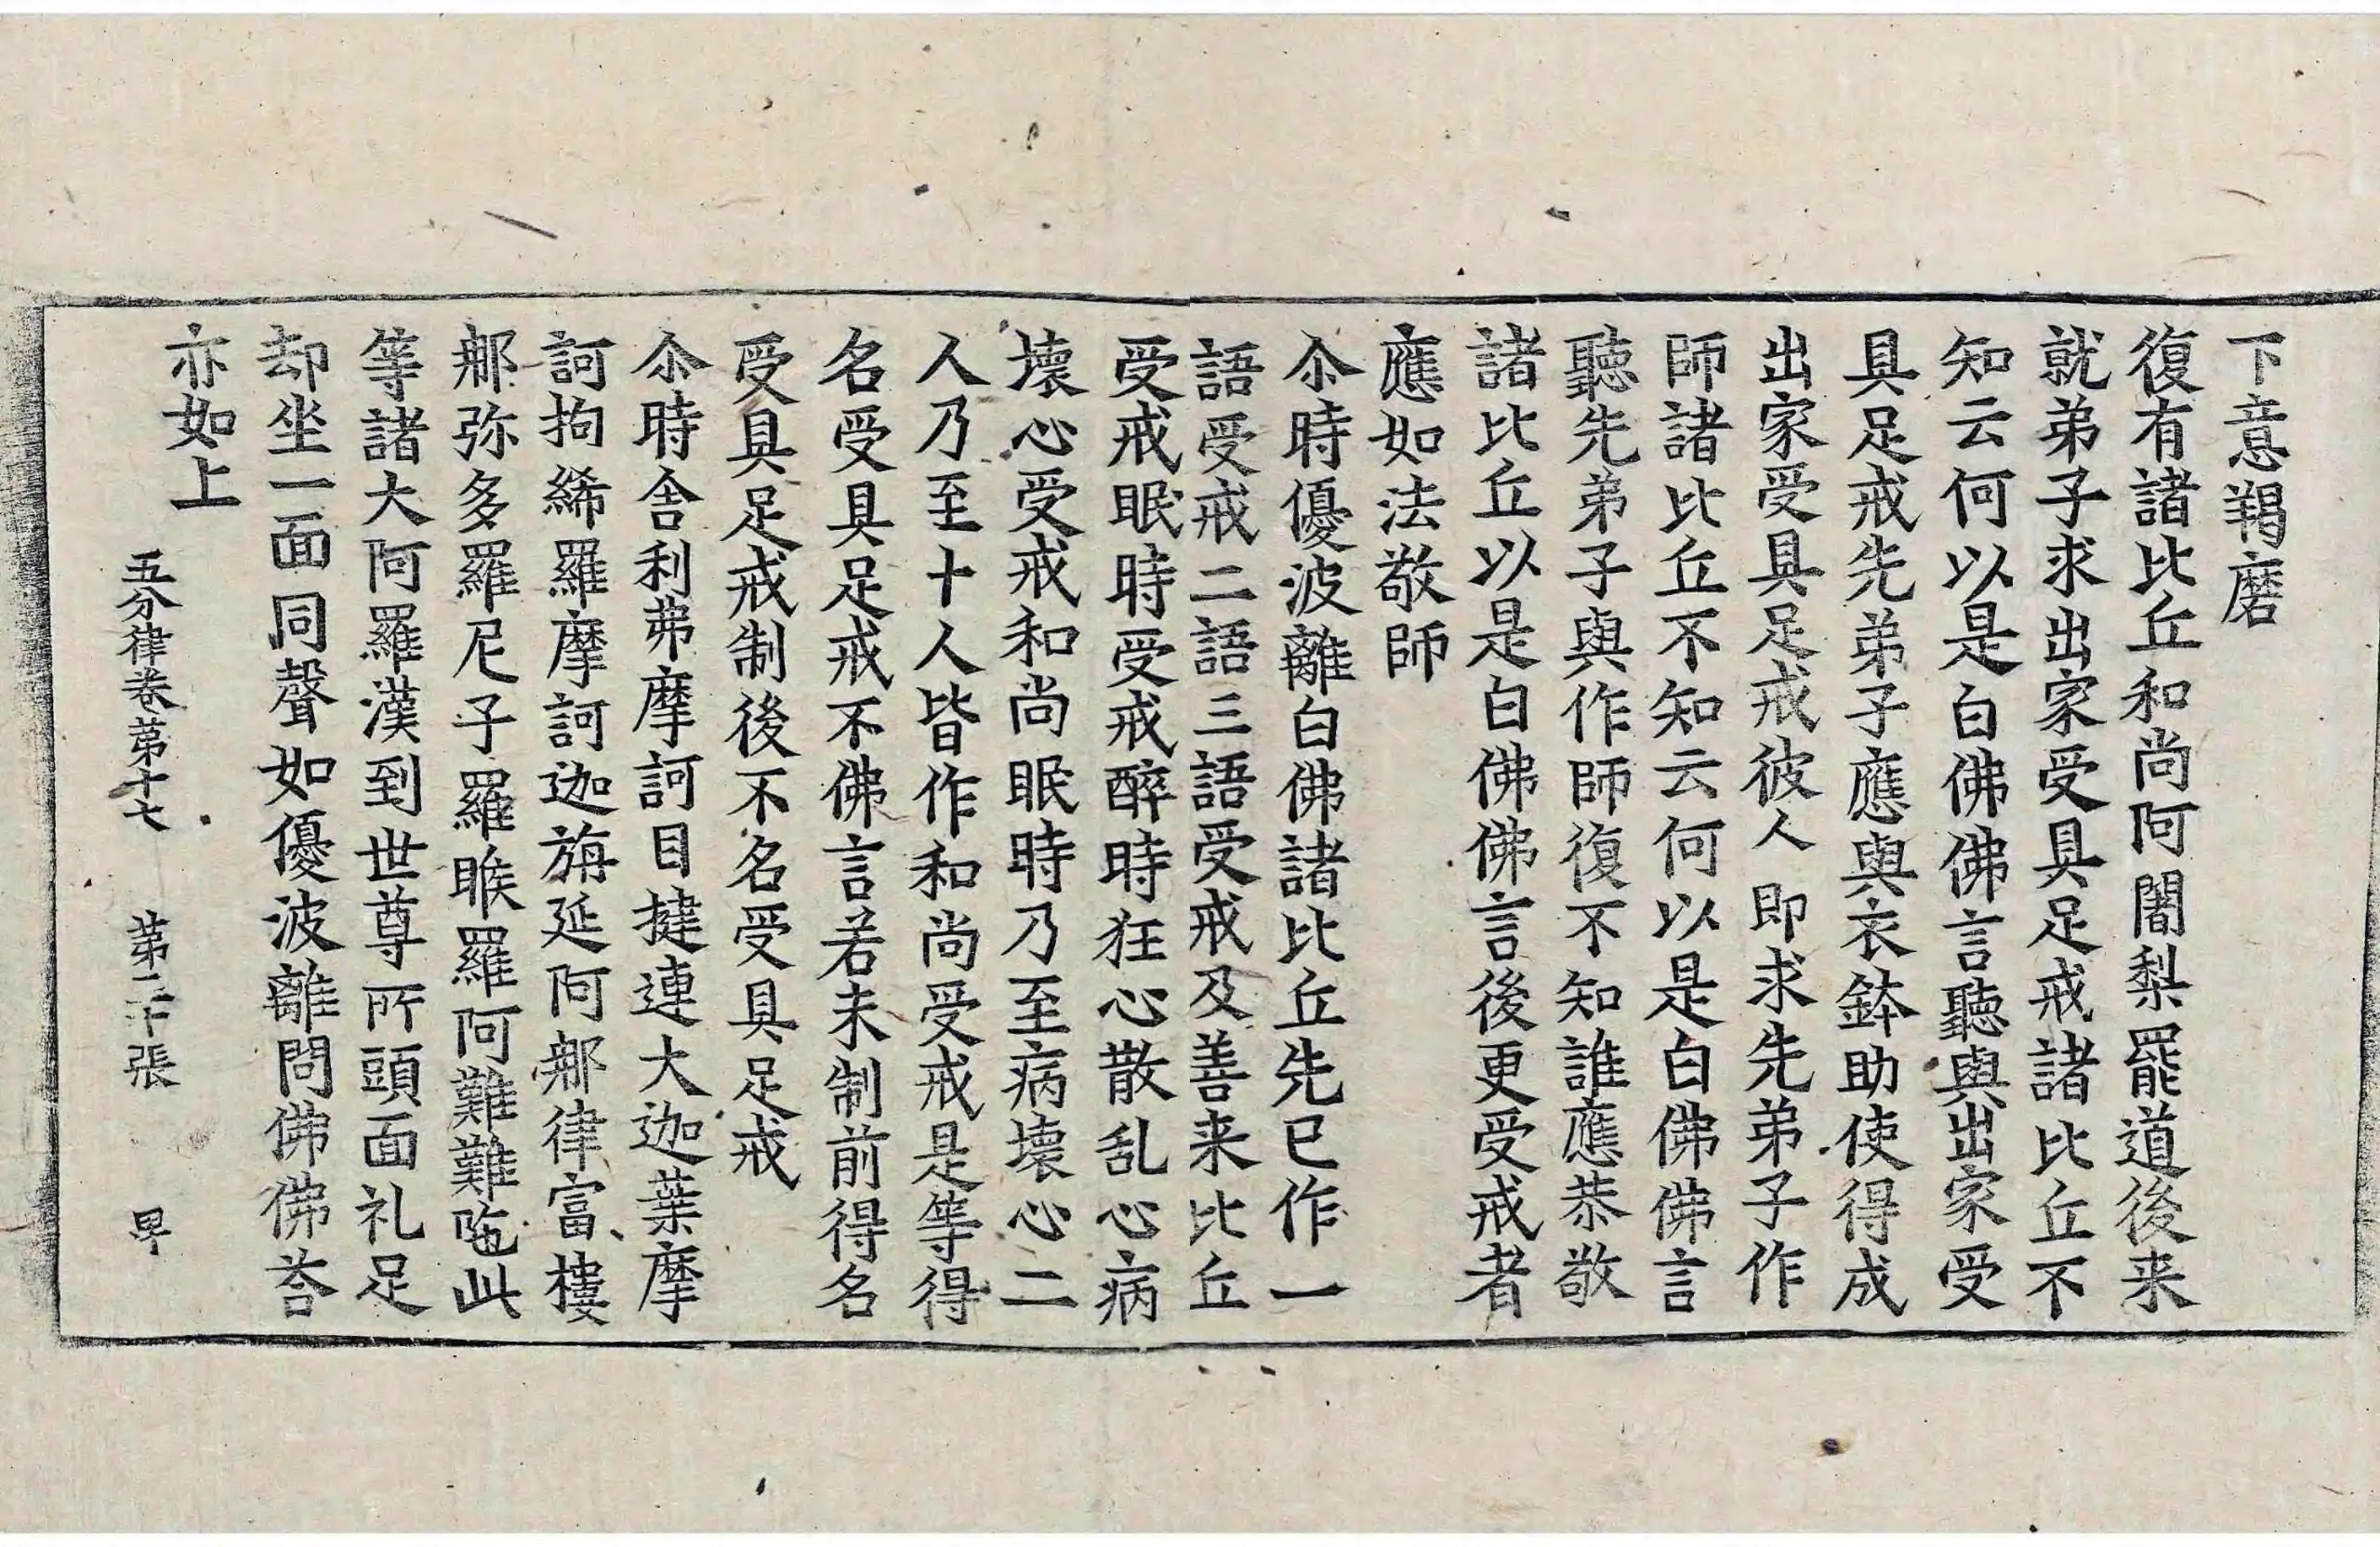 下意羯磨
復有諸比丘和尚阿闍梨罷道後来
就弟子求出家受具足戒諸比丘不
知云何以是白佛佛言聽與出家受
具足戒先弟子應與衣鉢助使得成
出家受具足戒彼人即求先弟子作
師諸比丘不知云何以是白佛佛言
聽先弟子與作師復不知誰應恭敬
諸比丘以是白佛佛言後更受戒者
應如法敬師
尒時優波離白佛諸比丘先已作一
語受戒二語三語受戒及善来比丘
受戒眠時受戒醉時狂心散乱心病
壞心受戒和尚眠時乃至病壞心二
人乃至十人皆作和尚受戒是等得
名受具足戒不佛言若未制前得名
受具足戒制後不名受具足戒
尒時舍利弗摩訶目揵連大迦葉摩
訶拘絺羅摩訶迦旃延阿那律富樓
那弥多羅尼子羅睺羅阿難難陁此
等諸大阿羅漢到世尊所頭面礼足
却坐一面同聲如優波離問佛佛荅
亦如上
五分律卷第十七 第二十張